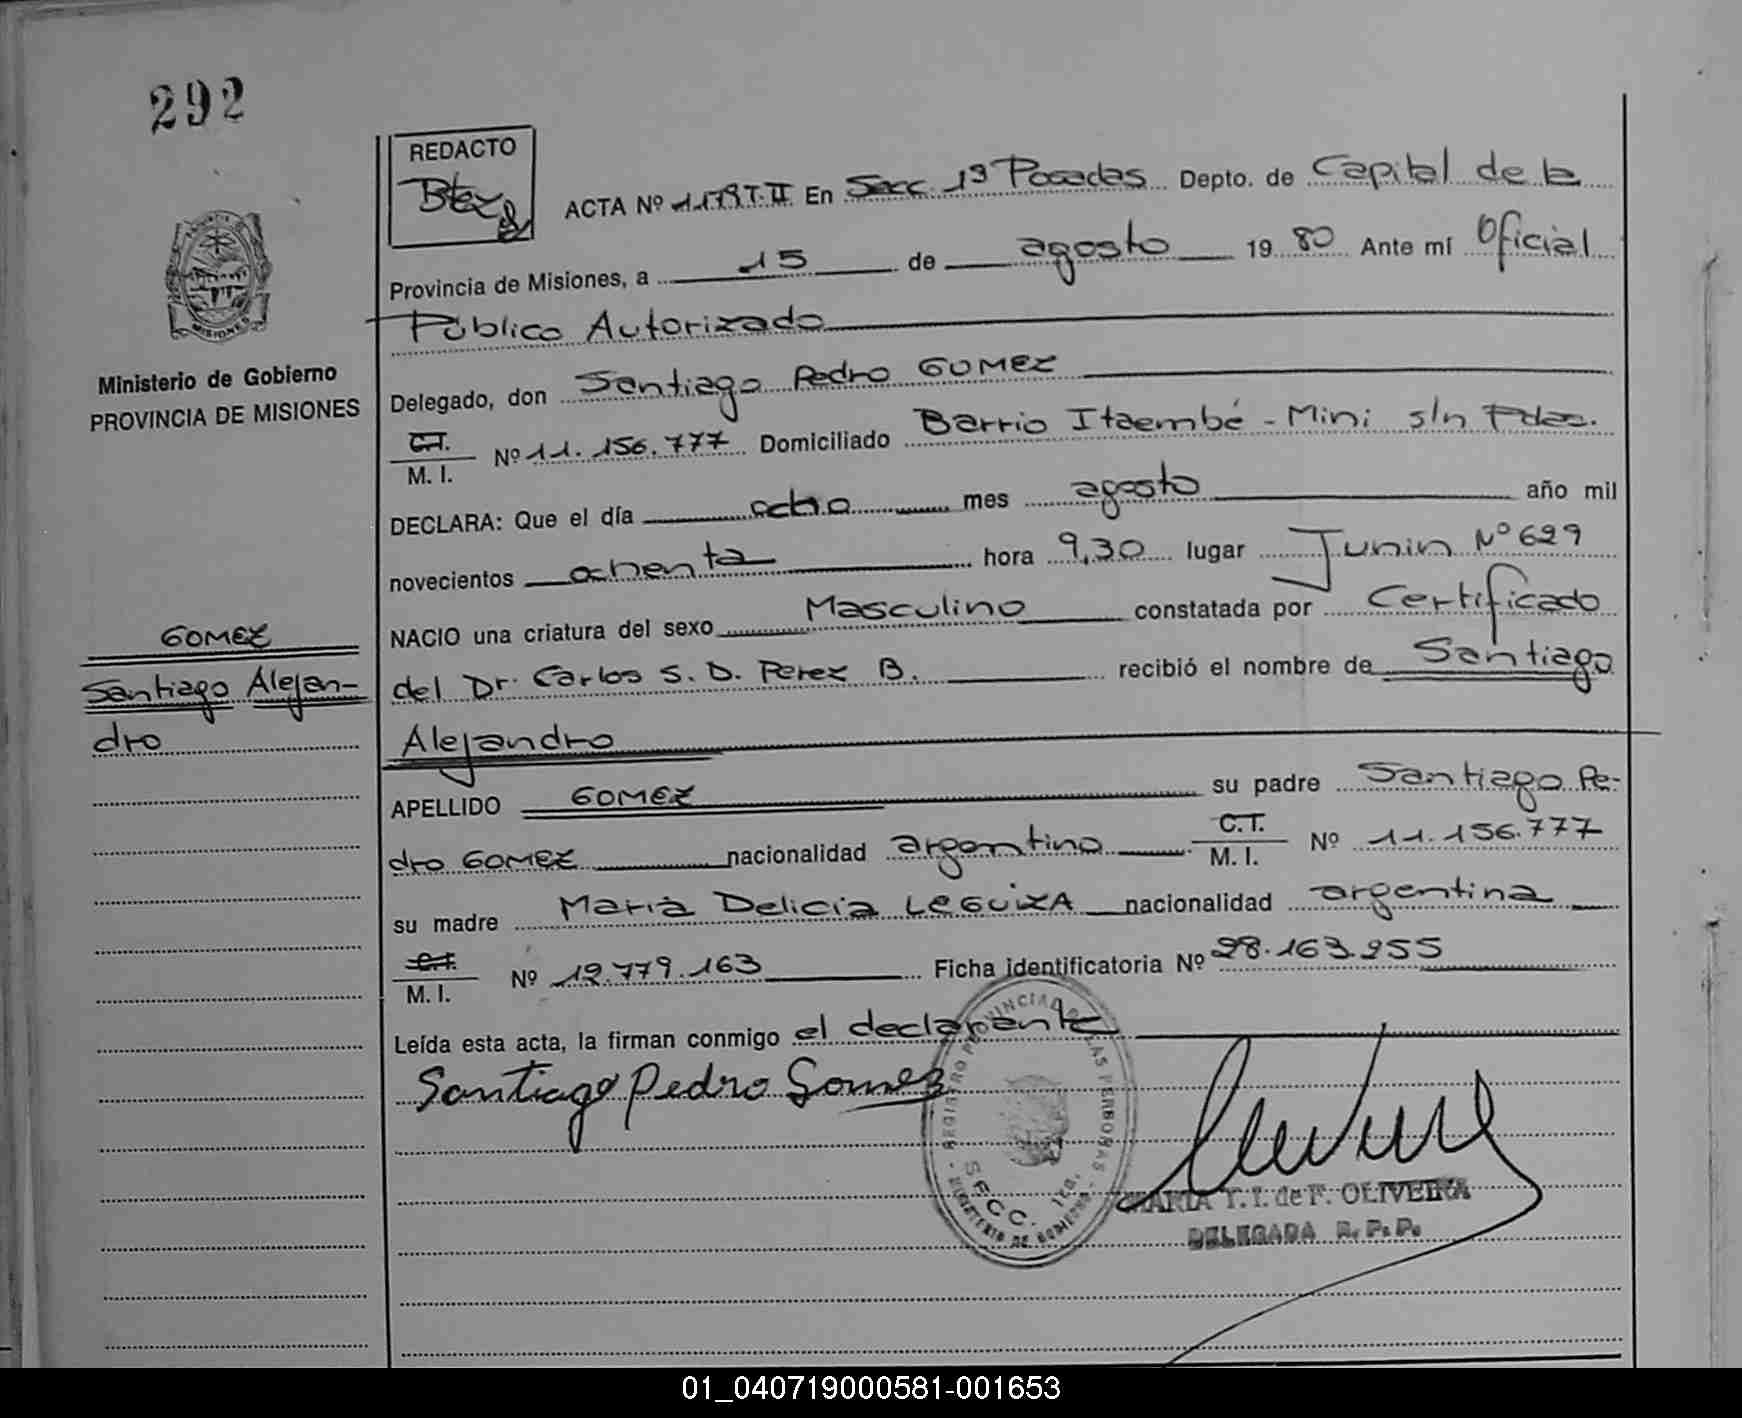 292
REDACTO
ACTA Nº 1179 T. II En Secc. 1ª Posadas Depto. de Capital de la
Provincia de Misiones, a 15 de agosto 1980 Ante mí Oficial
Público Autorizado
Ministerio de Gobierno
PROVINCIA DE MISIONES
Delegado, don Santiago Pedro GOMEZ
C.I.
M. I. Nº 11.156.777 Domiciliado Barrio Itaembé - Mini s/n Pdas.
DECLARA: Que el día ocho mes agosto año mil
novecientos ochenta hora 9,30 lugar Junin Nº 629
NACIO una criatura del sexo Masculino constatada por Certificado
del Dr. Carlos S. D. Perez B. recibió el nombre de Santiago
Alejandro
GOMEZ
Santiago Alejan-
dro
APELLIDO GOMEZ su padre Santiago Pe-
dro GOMEZ nacionalidad argentino C.I.
M. I. Nº 11.156.777
su madre Maria Delicia LEGUIZA nacionalidad argentina
C.I.
M. I. Nº 12.779.163 Ficha identificatoria Nº 28.163.255
Leída esta acta, la firman conmigo el declarante
Santiago Pedro Gomez
REGISTRO PROVINCIAL DE LAS PERSONAS
SECC. 1RA.
MINISTERIO DE GOBIERNO
MARIA T. I. de F. OLIVEIRA
DELEGADA R. P. P.
01_040719000581-001653